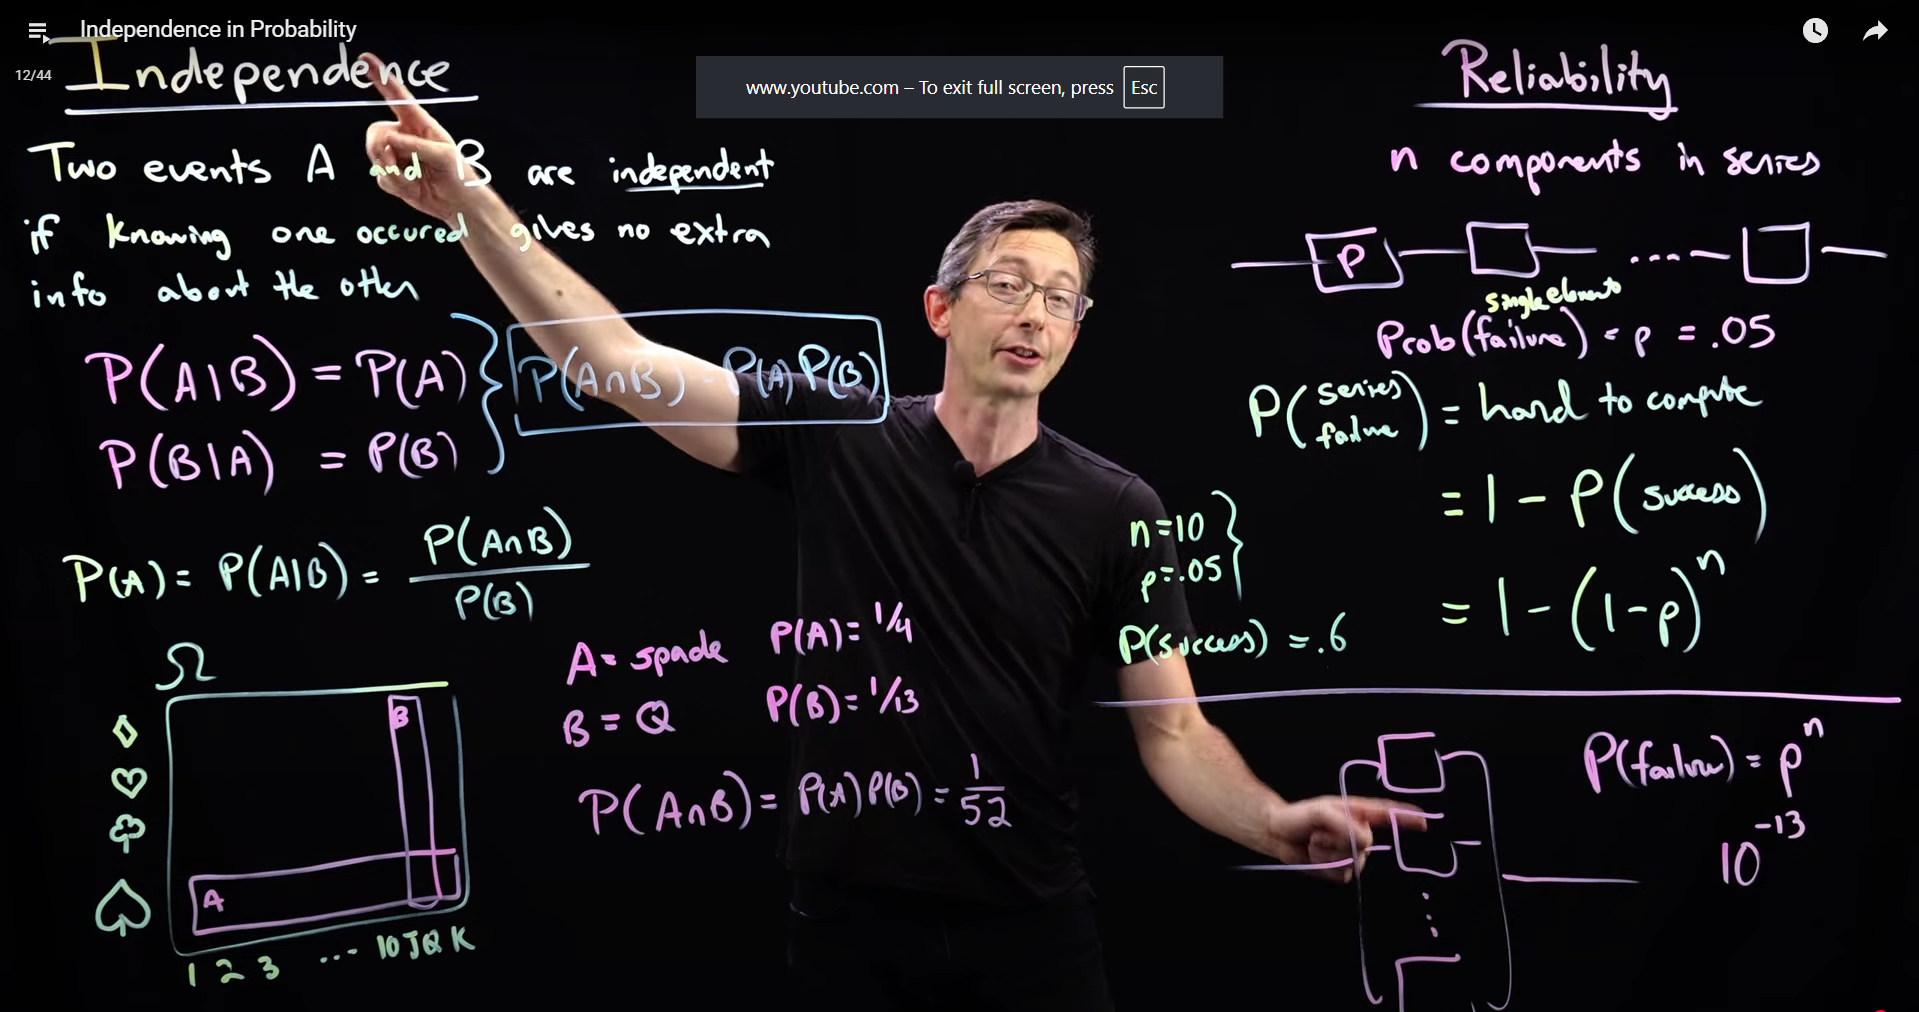 Independence in Probability
12/44
www.youtube.com – To exit full screen, press Esc
Independence
Two events A and B are independent
if knowing one occured gives no extra
info about the other
P(A|B) = P(A)
P(B|A) = P(B)
P(A∩B) = P(A)P(B)
P(A) = P(A|B) = P(A∩B) / P(B)
Ω
B
A
1 2 3 ... 10 J Q K
A = spade P(A) = 1/4
B = Q P(B) = 1/13
P(A∩B) = P(A)P(B) = 1/52
Reliability
n components in series
P
single elements
Prob(failure) = p = .05
P(series failure) = hard to compute
= 1 - P(success)
= 1 - (1-p)^n
n=10
p=.05
P(success) = .6
P(failure) = p^n
10^-13